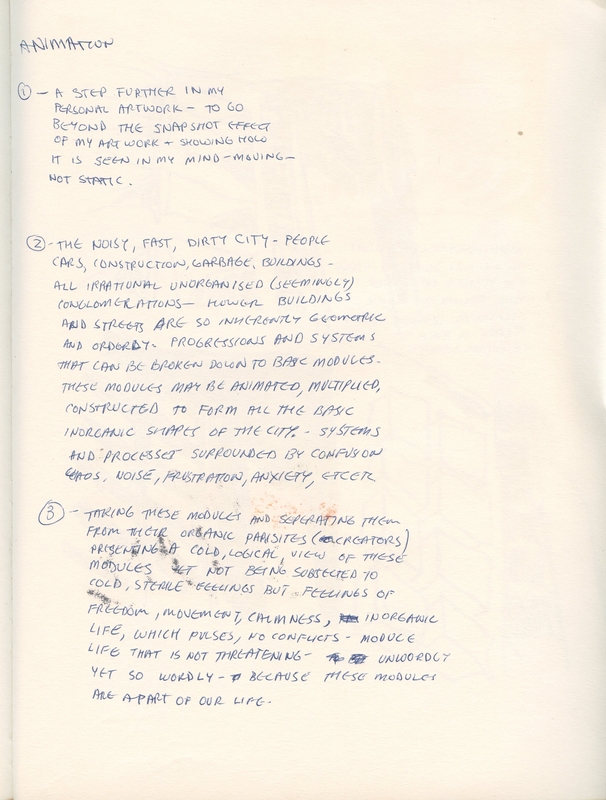 ANIMATION
① - A STEP FURTHER IN MY
PERSONAL ARTWORK - TO GO
BEYOND THE SNAPSHOT EFFECT
OF MY ART WORK + SHOWING HOW
IT IS SEEN IN MY MIND - MOVING -
NOT STATIC.
② - THE NOISY, FAST, DIRTY CITY - PEOPLE
CARS, CONSTRUCTION, GARBAGE, BUILDINGS -
ALL IRRATIONAL UNORGANISED (SEEMINGLY)
CONGLOMERATIONS - HOWER BUILDINGS
AND STREETS ARE SO INHERENTLY GEOMETRIC
AND ORDERDY - PROGRESSIONS AND SYSTEMS
THAT CAN BE BROKEN DOWN TO BASIC MODULES -
THESE MODULES MAY BE ANIMATED, MULTIPLIED,
CONSTRUCTED TO FORM ALL THE BASIC
INORGANIC SHAPES OF THE CITY. - SYSTEMS
AND PROCESSET SURROUNDED BY CONFUSION
CHAOS, NOISE, FRUSTRATION, ANXIETY, ETCETC
③ - TAKING THESE MODULES AND SEPERATING THEM
FROM THEIR ORGANIC PARISITES (CREATORS)
PRISENTING A COLD, LOGICAL, VIEW OF THESE
MODULES YET NOT BEING SUBJECTED TO
COLD, STERILE FEELINGS BUT FEELINGS OF
FREEDOM, MOVEMENT, CALMNESS, INORGANIC
LIFE, WHICH PULSES, NO CONFLICTS - MODULE
LIFE THAT IS NOT THREATENING - UNWORDLY
YET SO WORDLY - BECAUSE THESE MODULES
ARE A PART OF OUR LIFE.